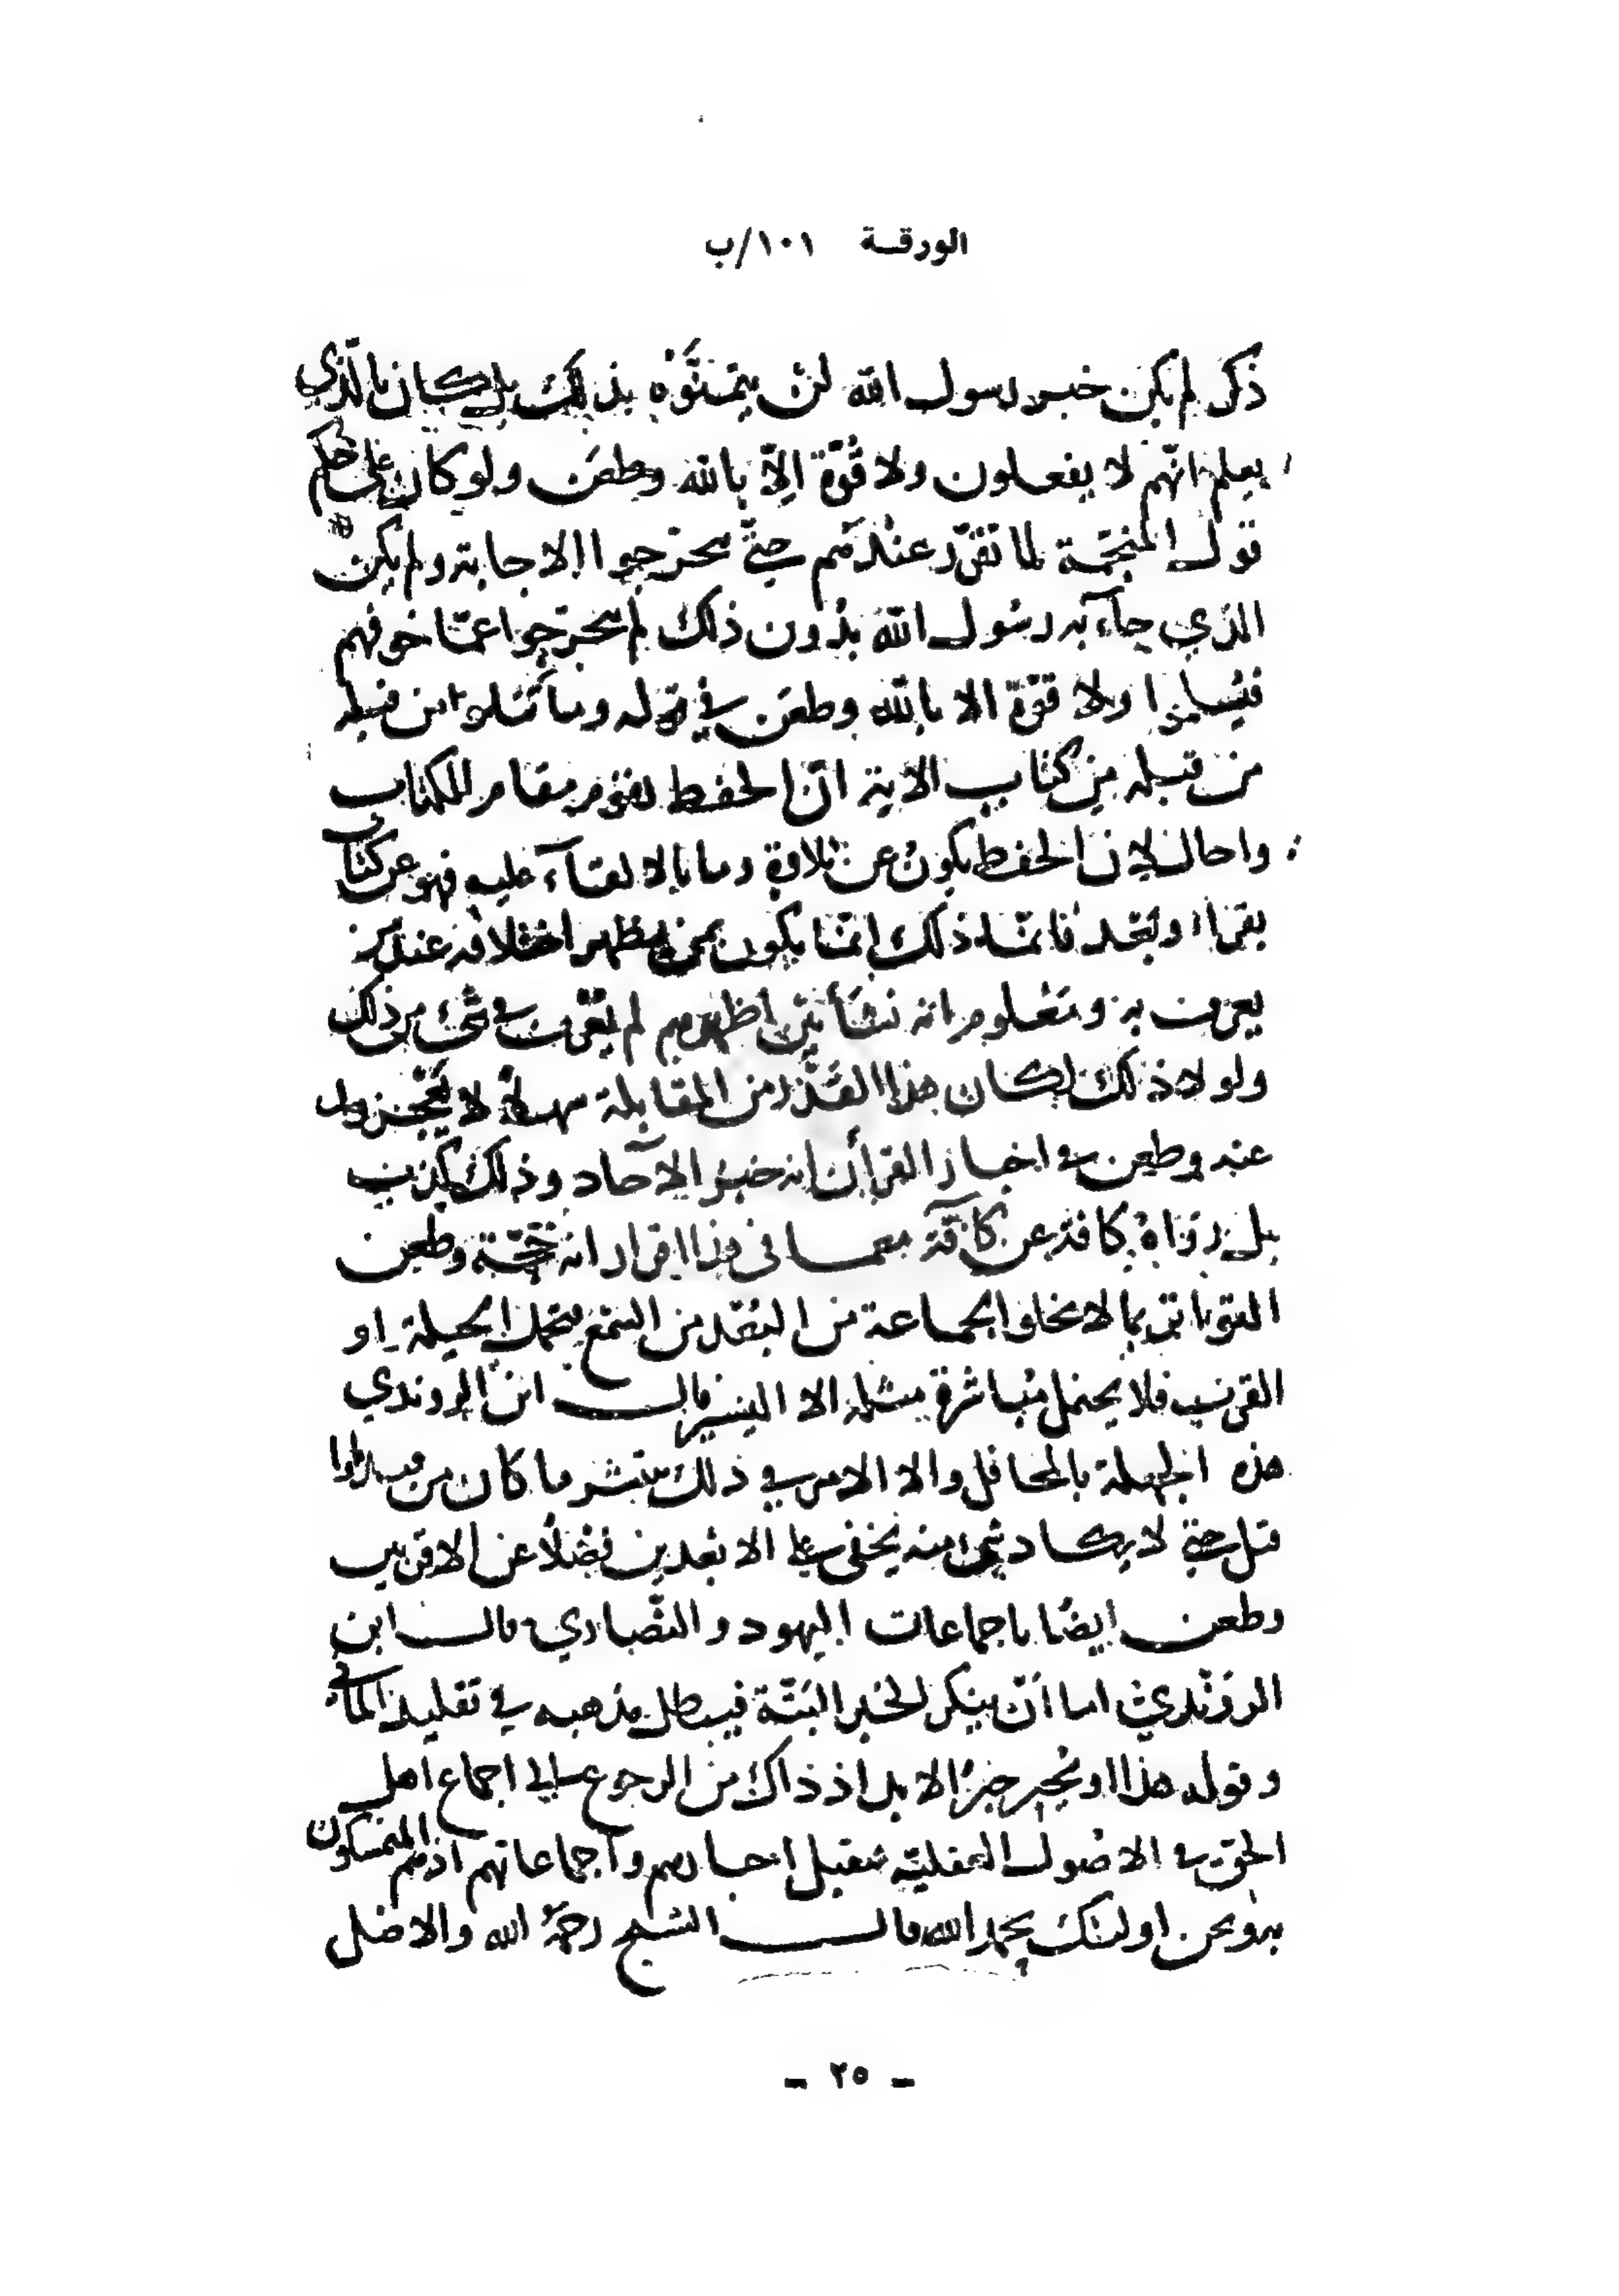 الورقة ١٠١/ب
ذكر لم يكن خبر رسول الله لن يتمنَّوْه بذلك بل كان بالّذي
يعلم انّهم لا يفعلون ولا قُوّة اِلاّ بالله وطعَن ولو كان على حكم
قول المنجّمة لما تقرّر عندهم حتّى يحرجوا الاجابة ولم يكن
الذي جآء به رسُول الله بدُون ذلك لم يحرجوا عمّا خوفهم
فيُسلموا ولا قوّة الا بالله وطعَن في قوله وما تتلوا من قبله
من قبله مِن كتاب الاية انّ الحفظ يقوم مقام الكتاب
واحال لان الحفظ يكونُ عن تلاوة وما بالالقآء عليه فهو عن كتاب
يقرا وبَعْد فانما ذلك انمّا يكون بمن يظهر اختلافه عند من
يعرف به ومعْلوم انه نشَأ بَيْن اظهرهم لم يُعْرف في شئ من ذلك
ولولا ذلك لكان هذا القَدْر من المقابلة سهلاً لا يعْجز
عنه وطعن في اخبار القرأن انه خبرُ الآحاد وذلك كذب
بل رَوَاهُ كافة عن كآفّة اقرار انه حُجّة وطعن
التواتر بما لا تخلوا الجماعة من البُعْد من السّمْع الحيلة او
القرْب فلا يحتمل مُباشرة مثله الا اليَسير قال ابن الروندي
هذه الجهلة بالمحافل والا الامر في ذلك ينتشر ما كان من
قبل حتى لا يكاد شئ منه يخفى على الابْعدين فضْلاً عن الاقربين
وطعن ايضًا باجماعات اليهود والنّصاري قال ابن
الروَنْدي اما اَنْ ينكر الخبر البَتّة فيبطل مذهبه في تقليد
وقوله هذا او الابد اذ ذاك من الرجوع الى اجماع اهل
الحق في الاصُول العقليّة فنقبل اخبارهم واجماعاتهم اذهم المتمسكون
به ونحن اولئك بحمد الله قال الشيخ رحمَهُ الله والاصل
- ٢٥ -